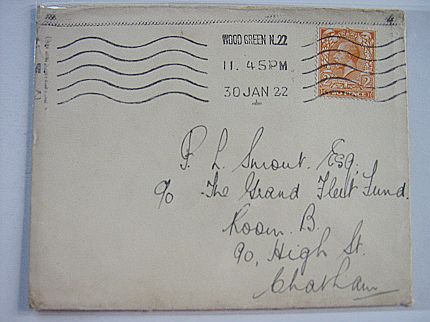 WOOD GREEN N.22
11. 45PM
30 JAN 22
P. L. Sprout. Esq.
c/o The Grand Fleet Fund.
Room B.
90, High St.
Chatham
4.
2